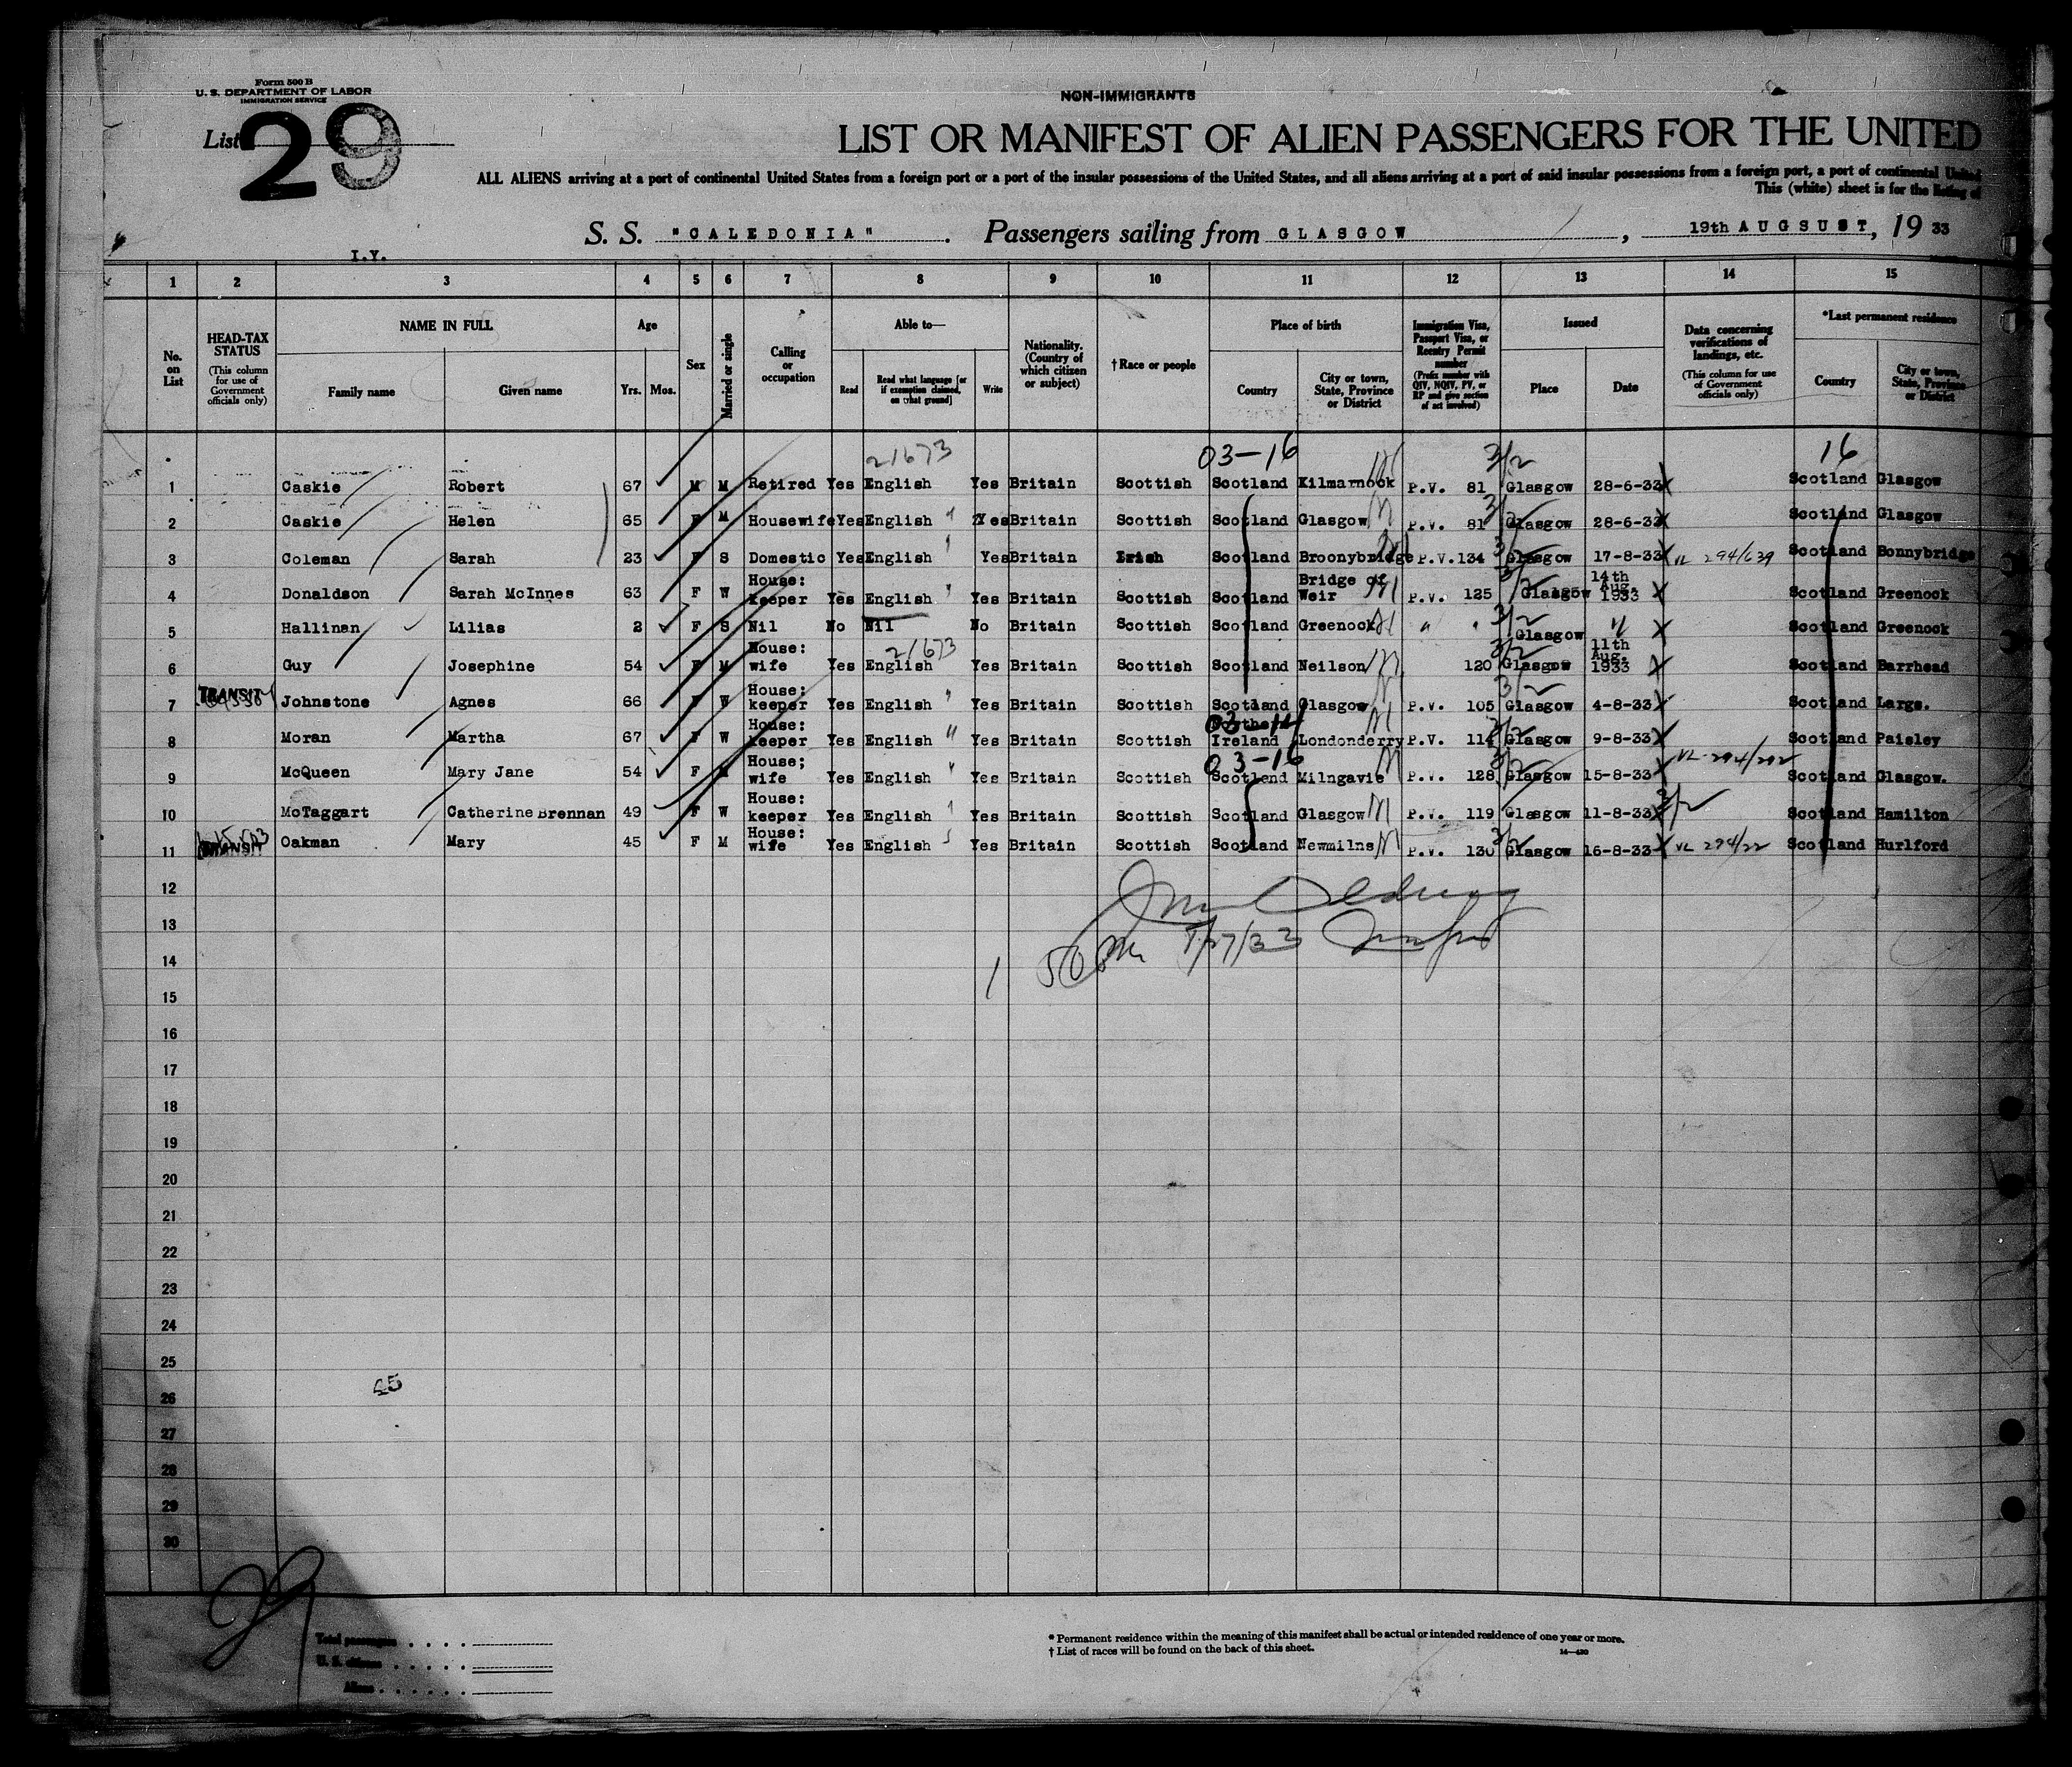 Form 500 B
U. S. DEPARTMENT OF LABOR
IMMIGRATION SERVICE
NON-IMMIGRANTS
List 29
LIST OR MANIFEST OF ALIEN PASSENGERS FOR THE UNITED
ALL ALIENS arriving at a port of continental United States from a foreign port or a port of the insular possessions of the United States, and all aliens arriving at a port of said insular possessions from a foreign port, a port of continental United
This (white) sheet is for the listing of
S. S. "CALEDONIA". Passengers sailing from GLASGOW, 19th AUGSUST, 19 33
I.Y.
1 2 3 4 5 6 7 8 9 10 11 12 13 14 15
No. on List
HEAD-TAX STATUS
(This column for use of Government officials only)
NAME IN FULL
Family name Given name
Age
Yrs. Mos.
Sex
Married or single
Calling or occupation
Able to—
Read
Read what language [or if exemption claimed, on what ground]
Write
Nationality. (Country of which citizen or subject)
†Race or people
Place of birth
Country
City or town, State, Province or District
Immigration Visa, Passport Visa, or Reentry Permit number
(Prefix number with QIV, NQIV, PV, or RP and give section of act involved)
Issued
Place Date
Data concerning verifications of landings, etc.
(This column for use of Government officials only)
*Last permanent residence
Country
City or town, State, Province or District
21673 03-16 3/2 16
1 Caskie Robert 67 M M Retired Yes English Yes Britain Scottish Scotland Kilmarnock P.V. 81 Glasgow 28-6-33 Scotland Glasgow
2 Caskie Helen 65 F M Housewife Yes English " Yes Britain Scottish Scotland Glasgow P.V. 81 Glasgow 28-6-33 Scotland Glasgow
3 Coleman Sarah 23 F S Domestic Yes English Yes Britain Irish Scotland Broonybridge P.V. 134 Glasgow 17-8-33 VL 294/639 Scotland Bonnybridge
4 Donaldson Sarah McInnes 63 F W House: keeper Yes English " Yes Britain Scottish Scotland Bridge of Weir P.V. 125 Glasgow 14th Aug. 1933 Scotland Greenock
5 Hallinan Lilias 2 F S Nil No Nil No Britain Scottish Scotland Greenock " " Glasgow " Scotland Greenock
21673
6 Guy Josephine 54 F M House: wife Yes English Yes Britain Scottish Scotland Neilson 120 Glasgow 11th Aug. 1933 Scotland Barrhead
7 TRANSIT Johnstone Agnes 66 F W House; keeper Yes English " Yes Britain Scottish Scotland Glasgow P.V. 105 Glasgow 4-8-33 Scotland Largs.
03-14
8 Moran Martha 67 F W House: keeper Yes English " Yes Britain Scottish Northern Ireland Londonderry P.V. 114 Glasgow 9-8-33 Scotland Paisley
03-16
9 McQueen Mary Jane 54 F M House; wife Yes English " Yes Britain Scottish Scotland Milngavie P.V. 128 Glasgow 15-8-33 VL-294/202 Scotland Glasgow.
10 McTaggart Catherine Brennan 49 F W House: keeper Yes English Yes Britain Scottish Scotland Glasgow P.V. 119 Glasgow 11-8-33 3/2 Scotland Hamilton
11 TRANSIT Oakman Mary 45 F M House: wife Yes English Yes Britain Scottish Scotland Newmilns P.V. 130 Glasgow 16-8-33 VL 294/22 Scotland Hurlford
12
13
14
15
16
17
18
19
20
21
22
23
24
25
26
27
28
29
30
45
29
Total passengers
U. S. citizens
Aliens
* Permanent residence within the meaning of this manifest shall be actual or intended residence of one year or more.
† List of races will be found on the back of this sheet.
14—420